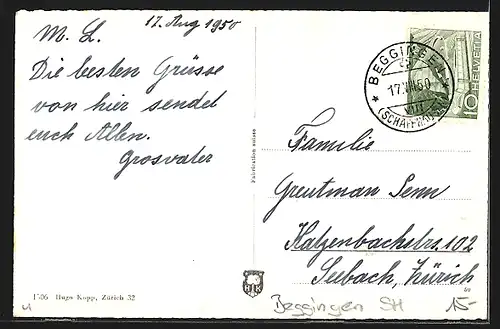 17. Aug 1950
M. L.
Die besten Grüsse
von hier sendet
euch Allen.
Grosvater
1506 Hugo Kopp, Zürich 32
Fabrication suisse
HELVETIA
10
BEGGINGEN
17.VIII.50
(SCHAFFHAUSEN)
Familie
Greutman Senn
Katzenbachstrs. 102
Seebach, Zürich
Beggingen SH
15.-